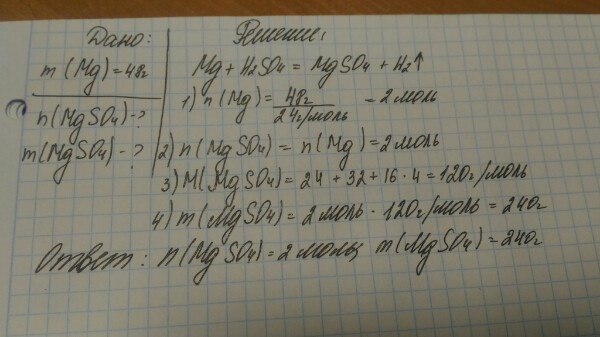 Дано:
m (Mg) = 48г
n(MgSO4) - ?
m(MgSO4) - ?
Решение:
Mg + H2SO4 = MgSO4 + H2↑
1) n (Mg) = 48г / 24г/моль = 2 моль
2) n(MgSO4) = n(Mg) = 2 моль
3) M(MgSO4) = 24 + 32 + 16 · 4 = 120г/моль
4) m(MgSO4) = 2 моль · 120г/моль = 240г
Ответ: n(MgSO4) = 2 моль; m(MgSO4) = 240г